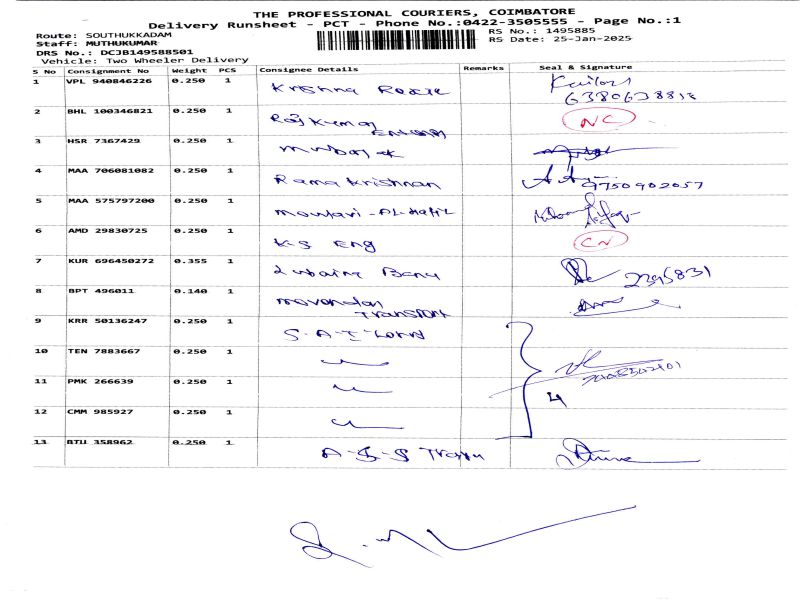 THE PROFESSIONAL COURIERS, COIMBATORE
Delivery Runsheet - PCT - Phone No.:0422-3505555 - Page No.:1
Route: SOUTHUKKADAM RS No.: 1495885
Staff: MUTHUKUMAR RS Date: 25-Jan-2025
DRS No.: DCJB149588501
Vehicle: Two Wheeler Delivery
S No Consignment No Weight PCS Consignee Details Remarks Seal & Signature
1 VPL 940846226 0.250 1 Krishna
2 BHL 100346821 0.250 1 Raj Kumar NC
3 HSR 7367429 0.250 1
4 MAA 706081082 0.250 1 Rama Krishnan 9750902057
5 MAA 575797200 0.250 1
6 AMD 29830725 0.250 1 K-S Eng CN
7 KUR 696450272 0.355 1 Banu
8 BPT 496011 0.140 1 Transport
9 KRR 50136247 0.250 1
10 TEN 7883667 0.250 1
11 PMK 266639 0.250 1
4
12 CMM 985927 0.250 1
13 BTU 358962 0.250 1